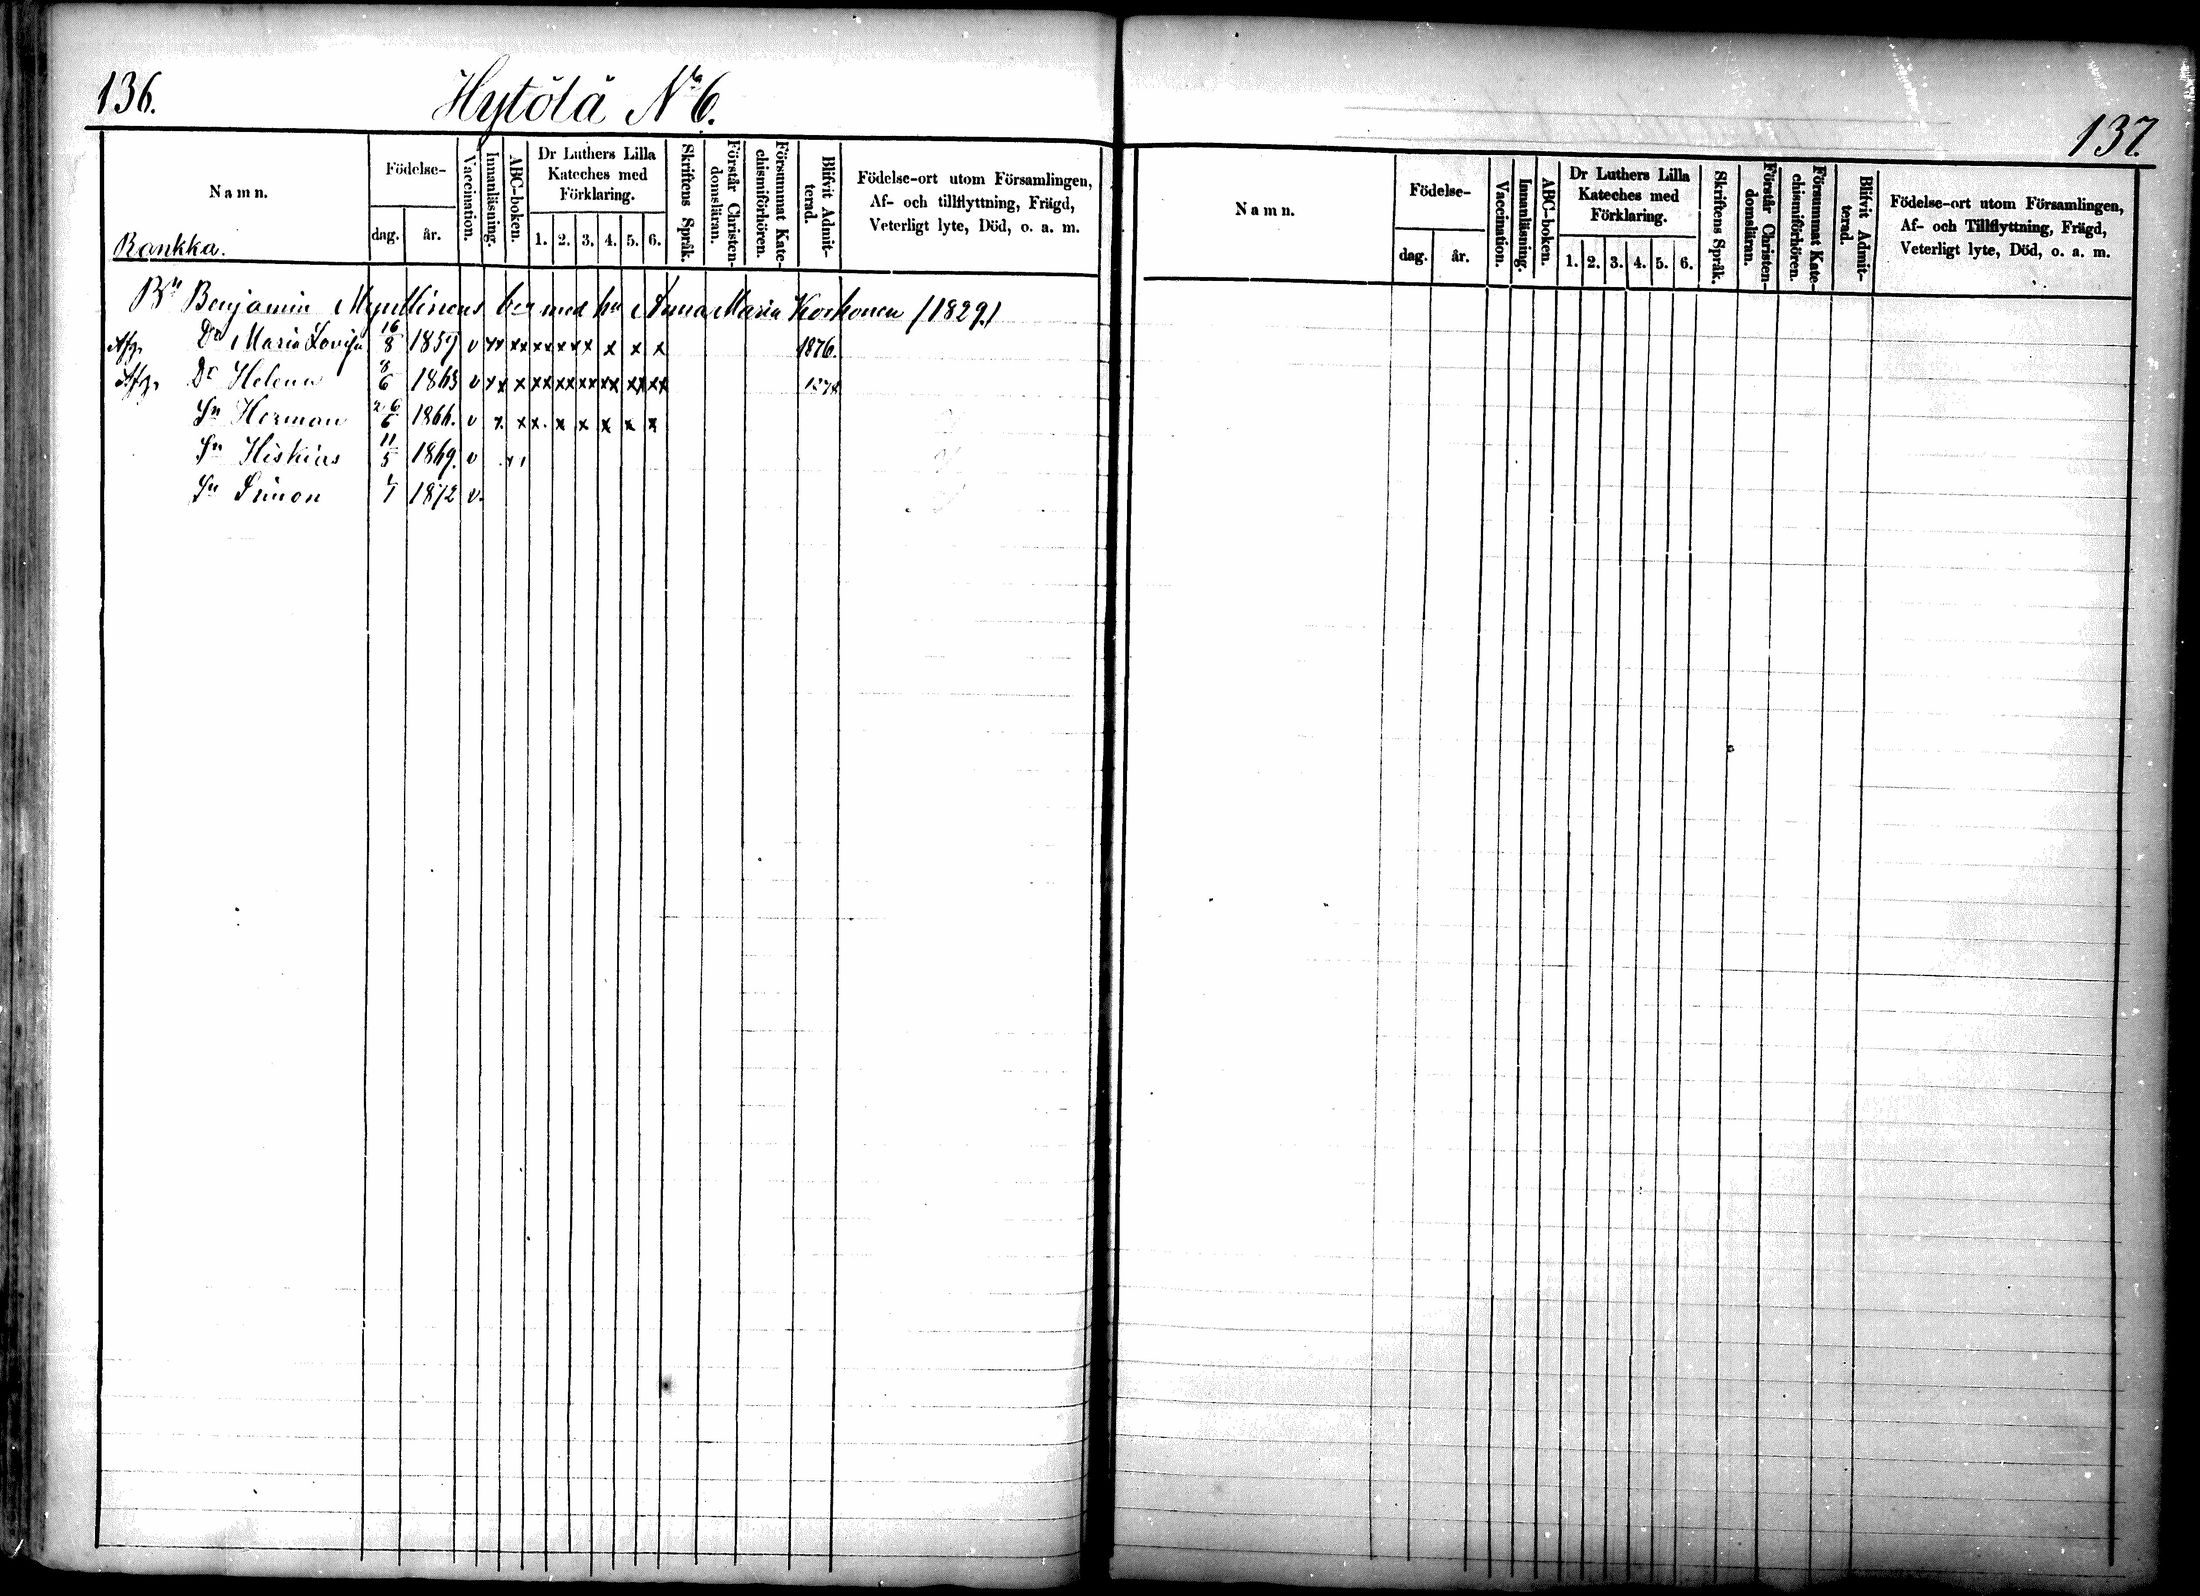 136.
Hytölä No 6.
Namn.
Födelse-
dag.
år.
Vaccination.
Innanläsning.
ABC-boken.
Dr Luthers Lilla
Kateches med
Förklaring.
1. 2. 3. 4. 5. 6.
Skriftens Språk.
Förstår Christen-
domsläran.
Försummat Kate-
chismiförhören.
Blifvit Admit-
terad.
Födelse-ort utom Församlingen,
Af- och tillflyttning, Frägd,
Veterligt lyte, Död, o. a. m.
Rankka.
Bn Benjamin med hu Anna Maria Korhonen /1829/
Afg. Dr Maria Lovisa 16/8 1857 v xx xx xx xx xx x x x 1876.
Afg. Dr Helena 8/6 1863 v xx x xx xx xx xx xx xx 1878
Sn Herman 26/6 1866. v x x x. x x x x x
Sn Hiskias 11/5 1869. v
Sn Simon 1872 v.
137.
Namn.
Födelse-
dag.
år.
Vaccination.
Innanläsning.
ABC-boken.
Dr Luthers Lilla
Kateches med
Förklaring.
1. 2. 3. 4. 5. 6.
Skriftens Språk.
Förstår Christen-
domsläran.
Försummat Kate-
chismiförhören.
Blifvit Admit-
terad.
Födelse-ort utom Församlingen,
Af- och Tillflyttning, Frägd,
Veterligt lyte, Död, o. a. m.